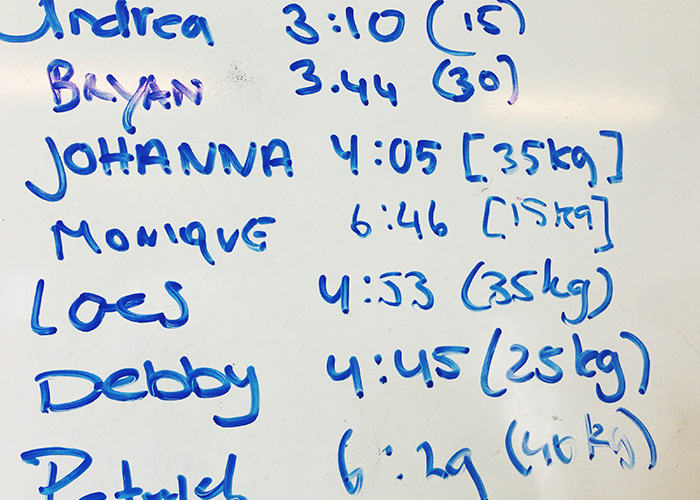 Andrea 3:10 (15)
BRYAN 3.44 (30)
JOHANNA 4:05 [35kg]
MONIQUE 6:46 [15kg]
Loes 4:53 (35kg)
Debby 4:45 (25kg)
Patrick 6:29 (40kg)